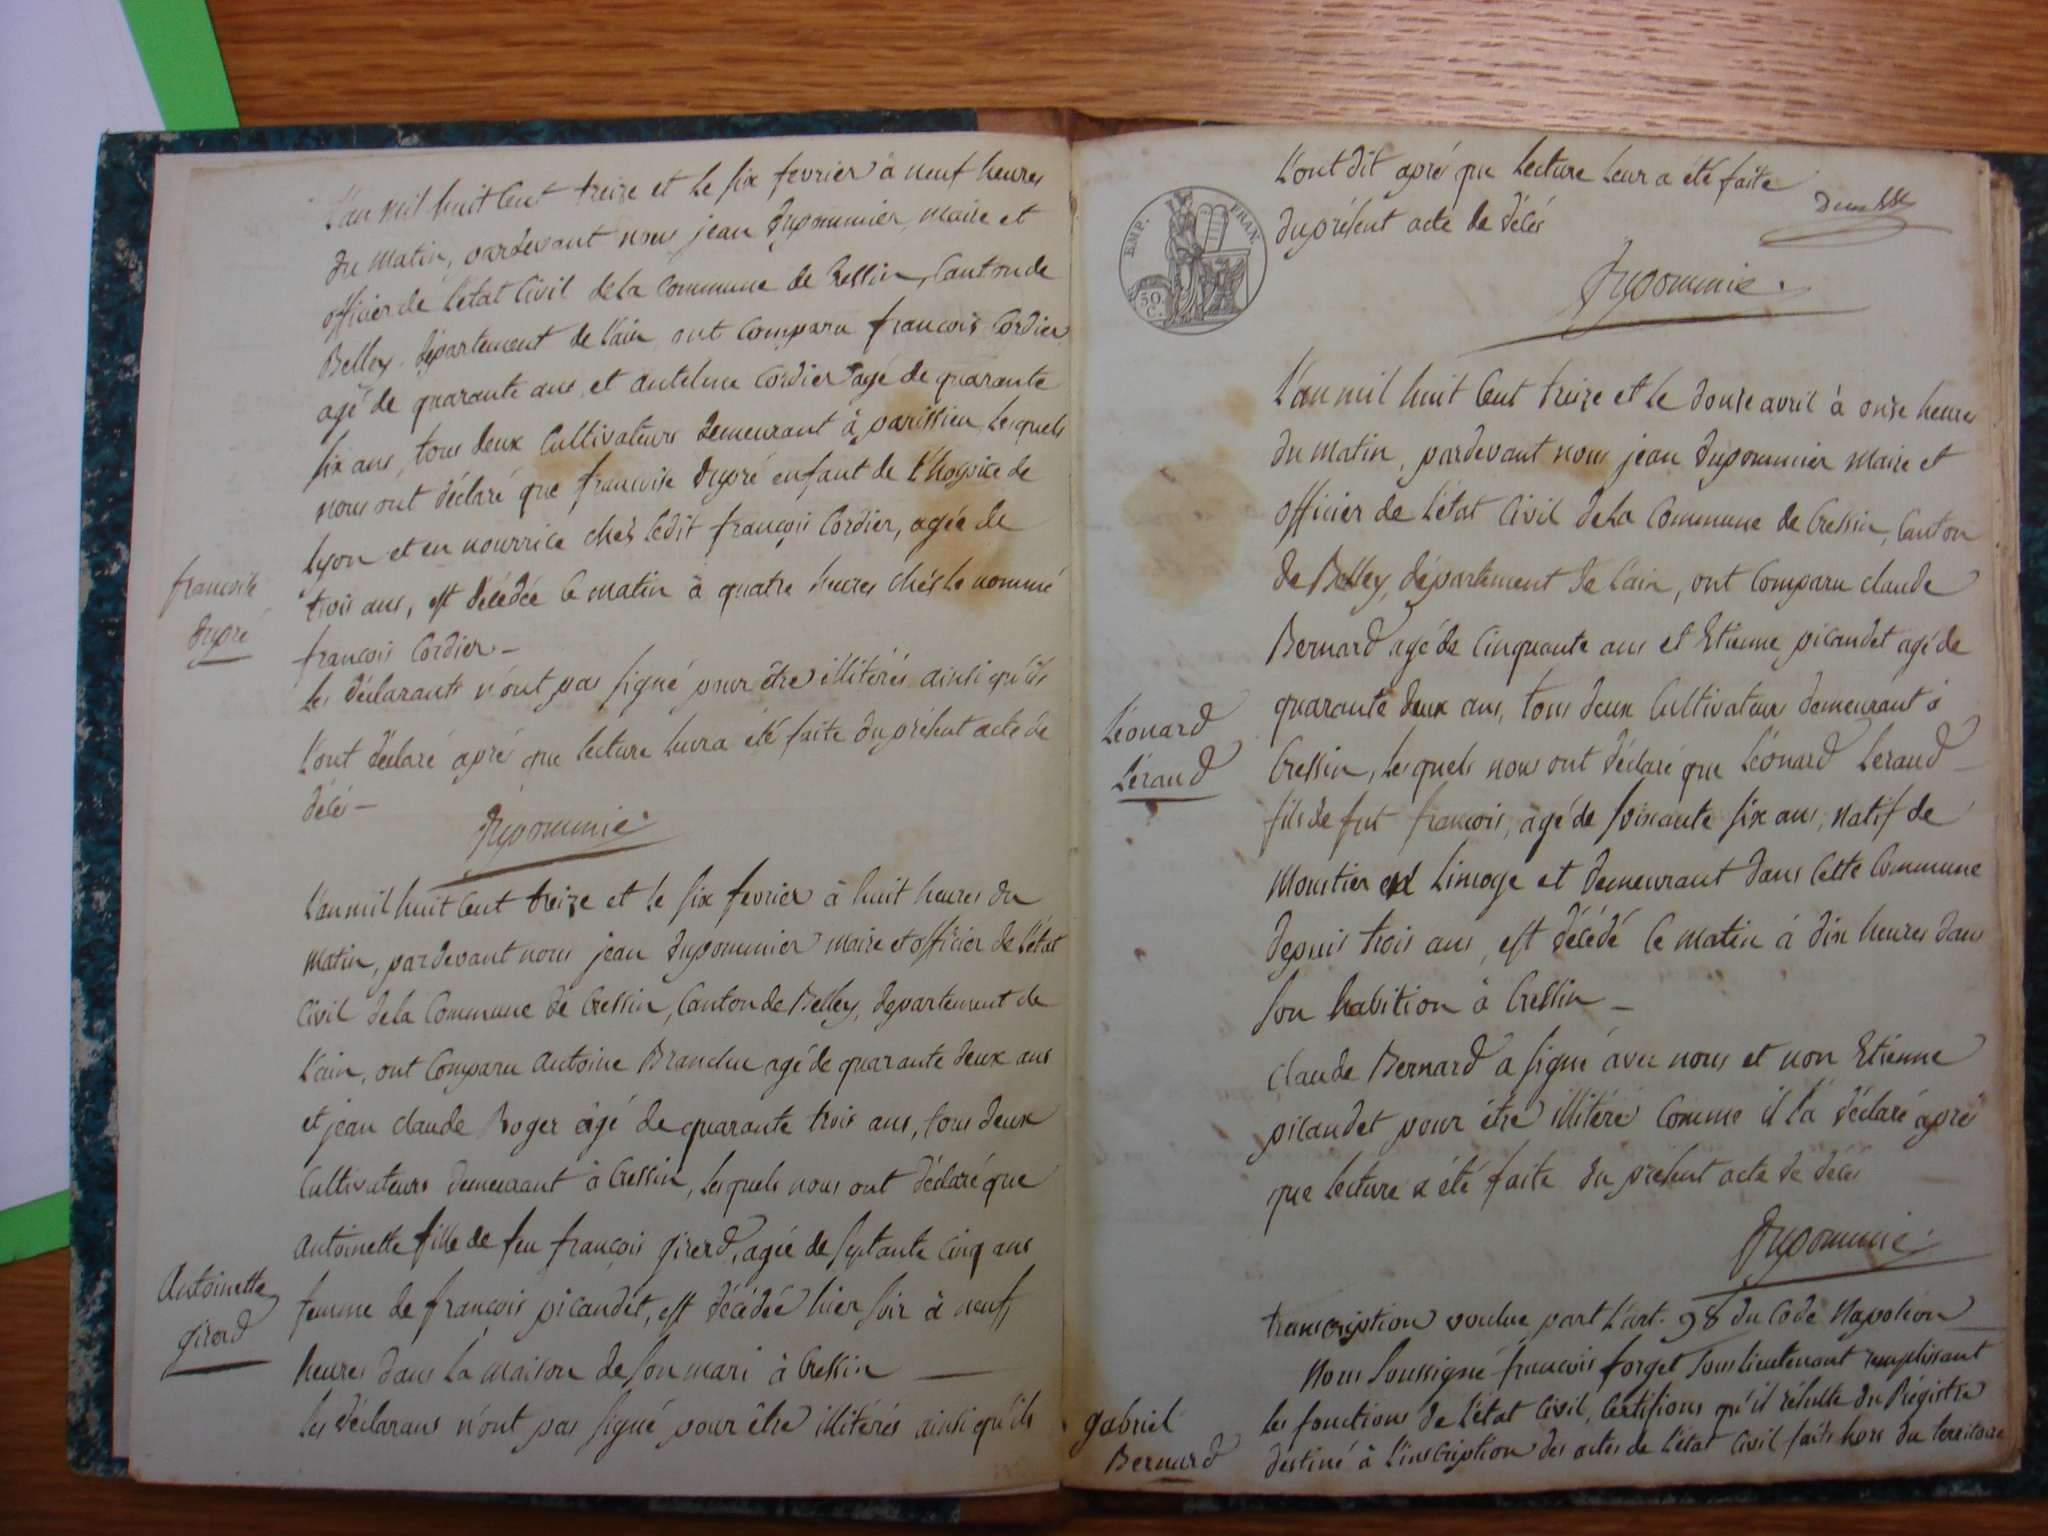 L'an mil huit Cent treize et le six fevrier à neuf heures
du matin, pardevant nous jean Dupommier, maire et
officier de l'état Civil de la Commune de Cressin, Canton de
Belley, département de l'ain, ont Comparu françois Cordier
agé de quarante ans, et antelme Cordier agé de quarante
six ans, tous deux Cultivateurs demeurant à parissieu, lesquels
nous ont déclaré que francoise Dupré enfant de l'hospice de
Lyon et en nourrice chés ledit françois Cordier, agée de
trois ans, est décédée Ce matin à quatre heures chés le nommé
françois Cordier —
les déclarants n'ont pas signé pour être illitérés ainsi qu'ils
l'ont déclaré apré que lecture leur a été faite du présent acte de
décés —
francoise
Dupré
Dupommié.
L'an mil huit Cent treize et le six fevrier à huit heures du
matin, pardevant nous jean Dupommier maire et officier de l'état
Civil de la Commune de Cressin, Canton de Belley, departement de
l'ain, ont Comparu antoine Branchu agé de quarante deux ans
et jean claude Roger âgé de quarante trois ans, tous deux
Cultivateurs demeurant à Cressin, lesquels nous ont déclaré que
Antoinette fille de feu françois girerd, agée de septante cinq ans
femme de françois picandet, est décédée hier soir à neuf
heures dans la maison de son mari à Cressin —
les déclarans n'ont pas signé pour être illitérés ainsi qu'ils
Antoinette
girerd
EMP. FRAN.
50
C.
l'ont dit apré que lecture leur a été faite
du présent acte de décés
Dupommié.
L'an mil huit Cent treize et le douse avril à onse heures
du matin, pardevant nous jean Dupommier maire et
officier de l'état Civil de la Commune de Cressin, Canton
de Belley, département de l'ain, ont Comparu claude
Bernard agé de Cinquante ans et Etienne picandet agé de
quarante deux ans, tous deux Cultivateurs demeurant à
Cressin, lesquels nous ont déclaré que Léonard Leraud
fils de fut francois, agé de soixante six ans, natif de
Moustier en Limoge et demeurant dans Cette Commune
depuis trois ans, est décédé Ce matin à dix heures dans
son habition à Cressin —
Claude Bernard a signé avec nous et non Etienne
picandet pour être illitéré Comme il l'a déclaré apré
que lecture a été faite du présent acte de décés
Léonard
Léraud
Dupommié.
transcription voulue part l'art. 98 du Code Napoléon
Nous soussigné francois forget sous lieutenant remplissant
les fonctions de l'état Civil, Certifions qu'il résulte du Régistre
destiné à l'inscription des actes de l'état Civil faits hors du territoire
gabriel
Bernard